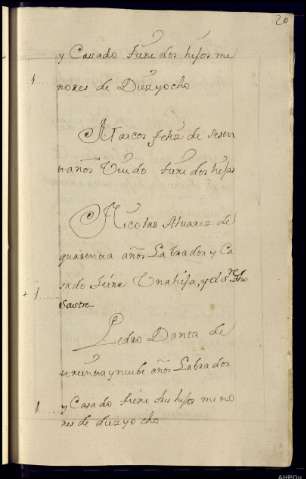 20
y Casado tiene dos hijos me
nores de Diezyocho
Marcos de sesen
ta años Viudo tiene dos hijos
Nicolas Aluarez de
quarenta años Labrador y Ca
sado tiene Una hija, y el
Sastre
Pedro Danta de
y nuebe años Labrador
y Casado tiene dos hijos meno
res de diezyocho